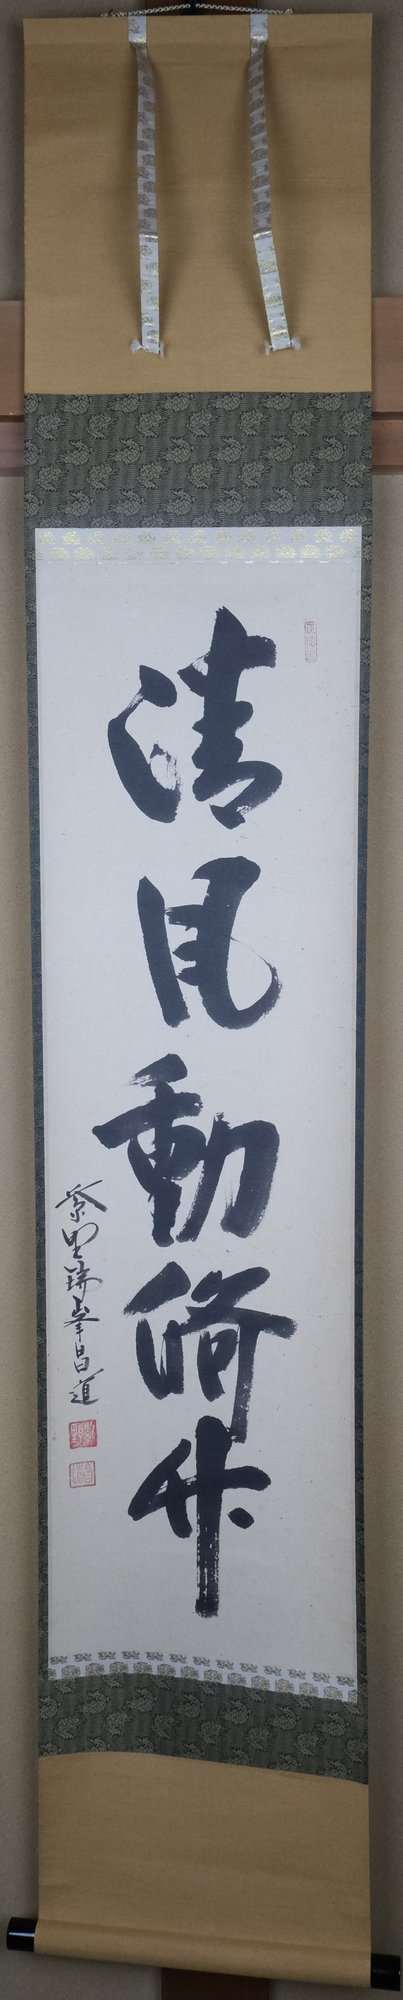 清風動脩竹
紫野瑞峯昌道